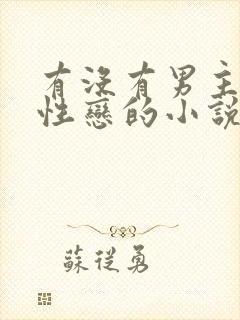 有没有男主
性戀的小說
蘇從勇